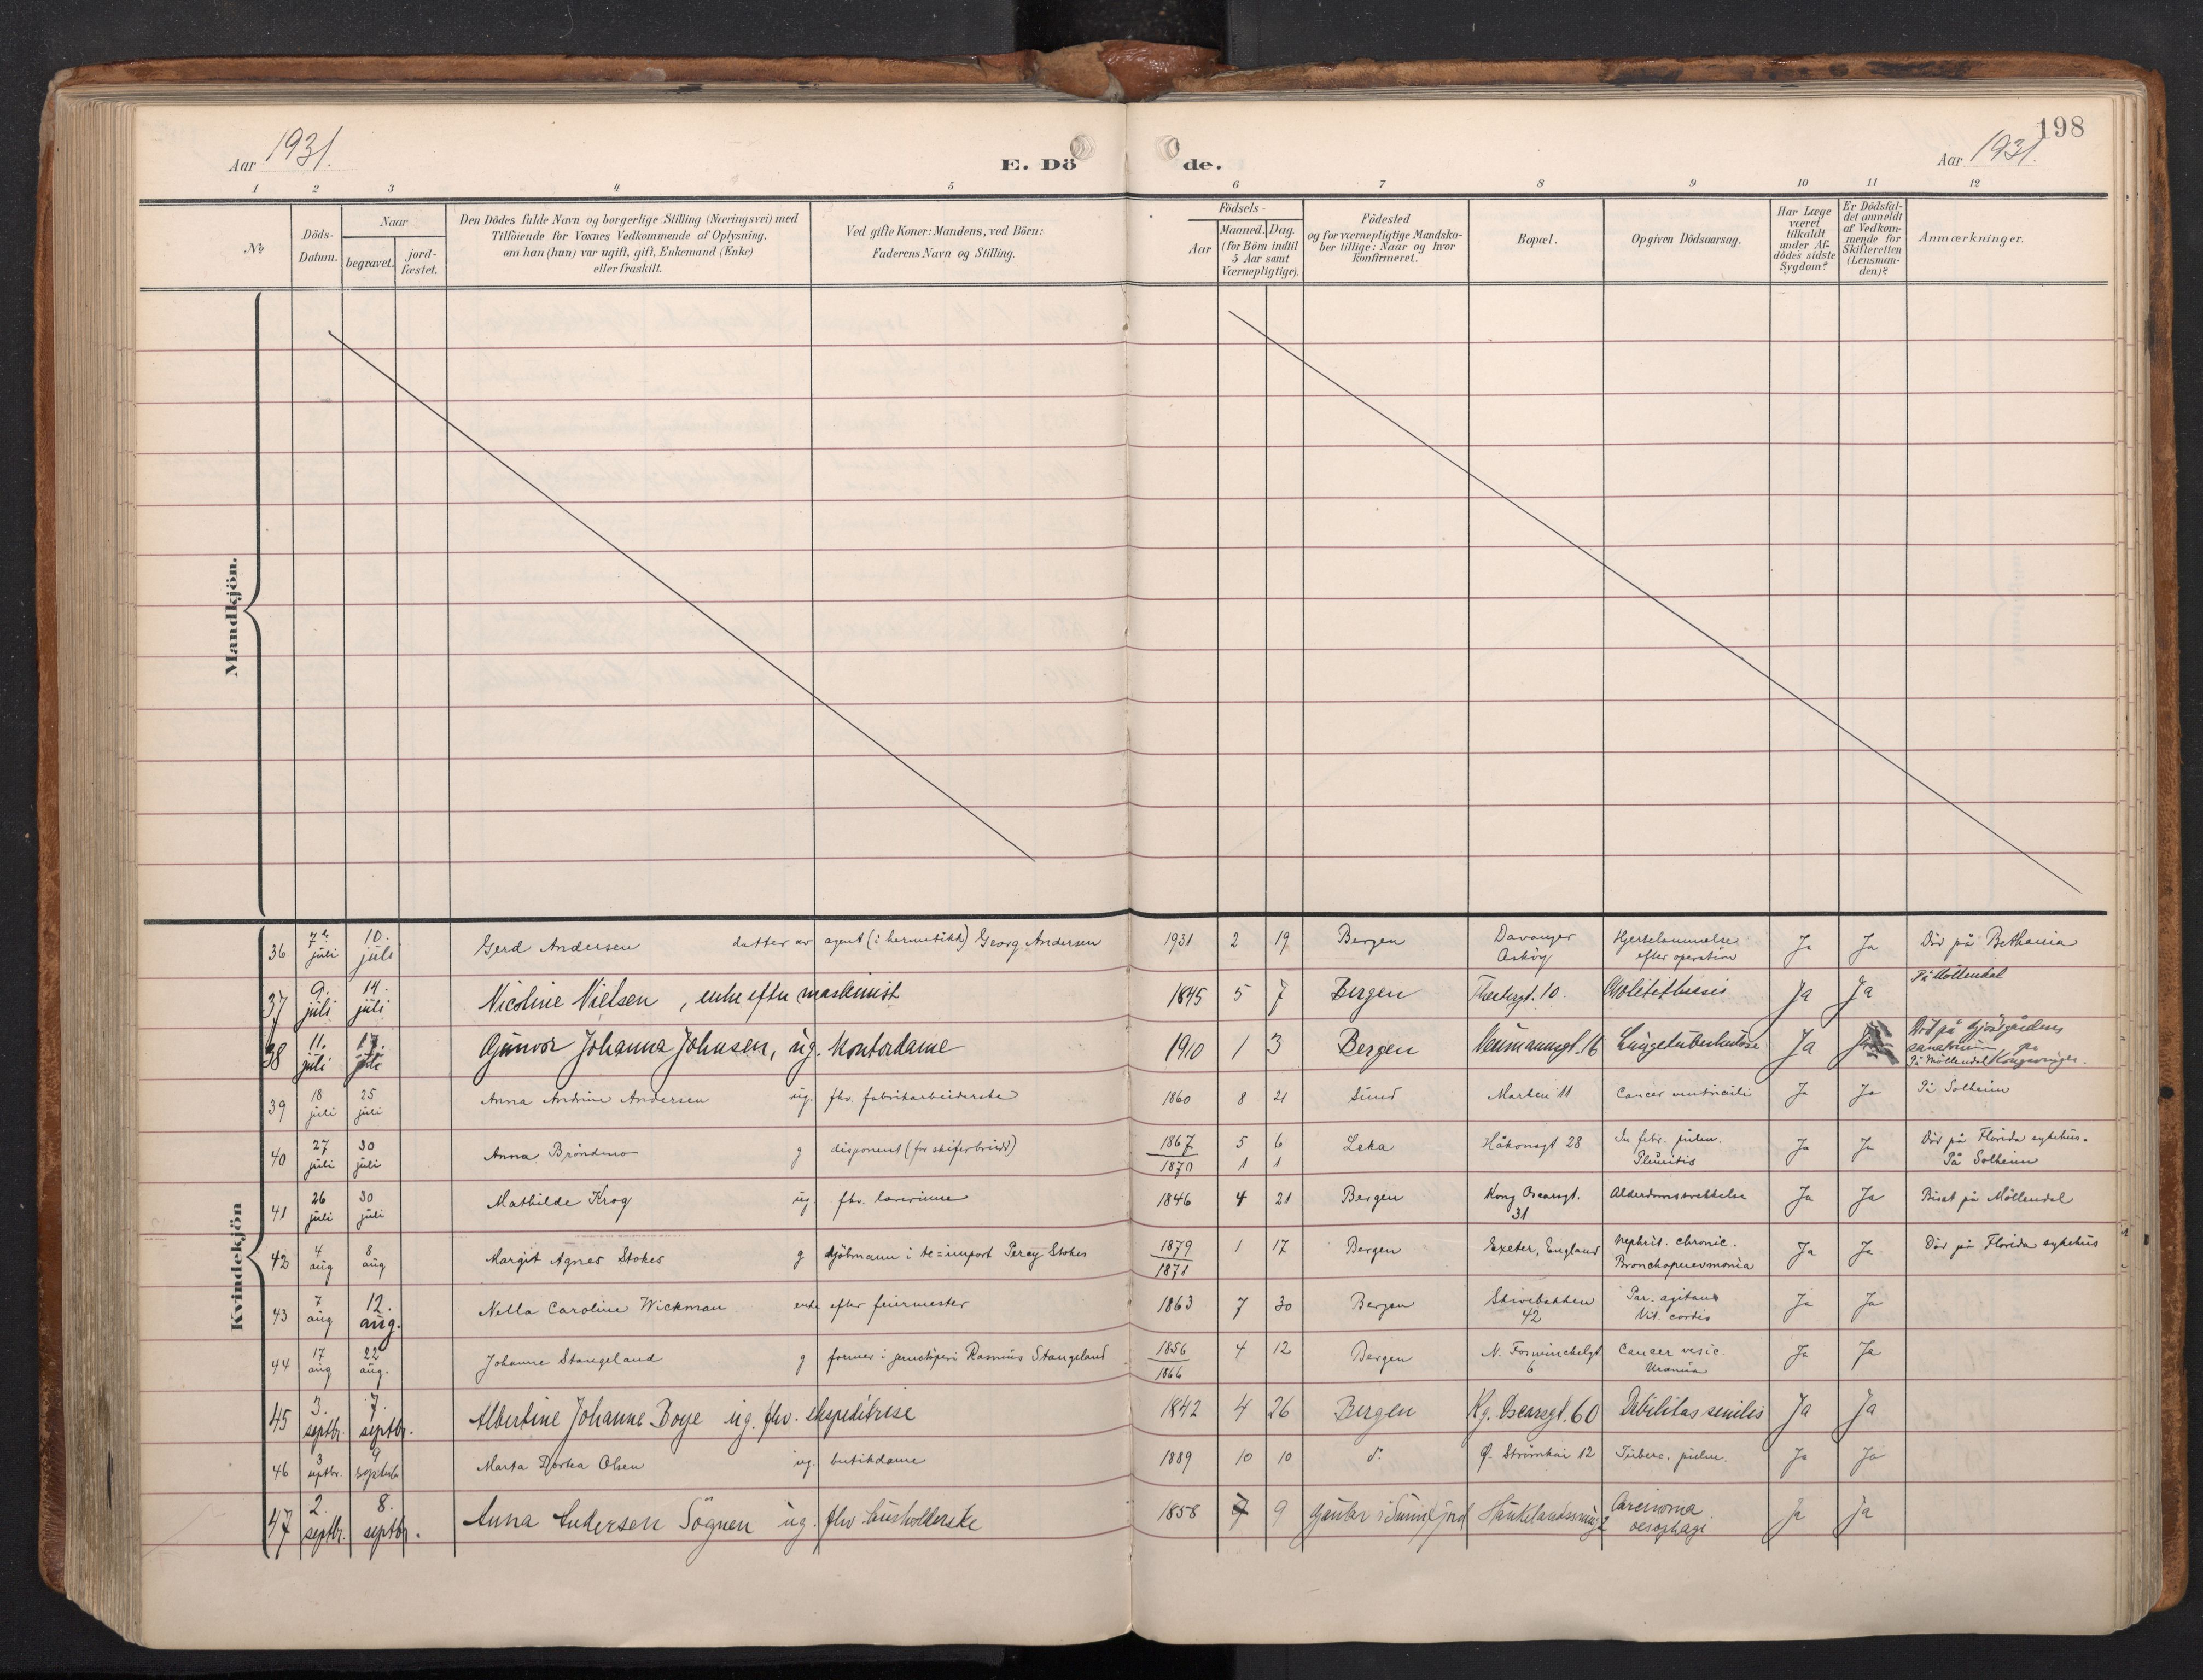 198
Aar 1931.
E. Dö de.
Aar 1931.
1 2 3 4 5 6 7 8 9 10 11 12
No
Döds-
Datum.
Naar
begravet.
jord-
fæstet.
Den Dödes fulde Navn og borgerlige Stilling (Næringsvei) med
Tilföiende for Voxnes Vedkommende af Oplysning,
om han (hun) var ugift, gift, Enkemand (Enke)
eller fraskilt.
Ved gifte Koner: Mandens, ved Börn:
Faderens Navn og Stilling.
Födsels-
Aar
Maaned. Dag.
(for Börn indtil
5 Aar samt
Værnepligtige).
Födested
og for værnepligtige Mandska-
ber tillige: Naar og hvor
konfirmeret.
Bopæl.
Opgiven Dödsaarsag.
Har Læge
været
tilkaldt
under Af-
dödes sidste
Sygdom?
Er Dödsfal-
det anmeldt
af Vedkom-
mende for
Skifteretten
(Lensman-
den)?
Anmærkninger.
Mandkjön.
Kvindekjön
36 7. juli 10. juli Gerd Andersen datter av agent (i hermetikk) Georg Andersen 1931 2 19 Bergen Davanger Askøy Hjertelammelse efter operation Ja Ja Død på Bethania
37 9. juli 14. juli Nicoline Nielsen, enke efter maskinist 1845 5 7 Bergen Teatergt. 10. Ja Ja På Møllendal
38 11. juli 17. juli Gunvor Johanna Johnsen, ug. kontordame 1910 1 3 Bergen Neumannsgt. 16 Lungetuberkulose Ja Ja Død på sanatorium På Møllendal
39 18 juli 25 juli Anna Andrine Andersen ug. fhv. fabrikarbeiderske 1860 8 21 Sund Marken 11 Cancer ventriculi Ja Ja På Solheim
40 27 juli 30 juli Anna Bröndmo g disponent (for skiferbrudd) 1867 1870 5 6 1 1 Leka Håkonsgt 28 pulm. Pleuritis Ja Ja Død på Florida sykehus. På Solheim
41 26 juli 30 juli Mathilde Krog ug. fhv. lærerinne 1846 4 21 Bergen Kong Oscarsgt. 31 Alderdomssvekkelse Ja Ja Bisat på Møllendal
42 4 aug 8 aug Margit Agnes Stokes g kjøbmann i te=import Percy Stokes 1879 1871 1 17 Bergen Exeter, England Nephrit. chronic. Bronchopneumonia Ja Ja Død på Florida sykehus
43 7 aug 12. aug. Nella Caroline Wickman enke efter feiermester 1863 7 30 Bergen Skivebakken 42 Par. agitans Vit. cordis Ja Ja
44 17 aug 22 aug. Johanne Stangeland g former i jernstöperi Rasmus Stangeland 1856 1866 4 12 Bergen N. Foswinckelgt 6 Cancer vesic. Uræmia Ja Ja
45 3. septbr. 7. septbr. Albertine Johanne Boye ug. fhv. ekspeditrise 1842 4 26 Bergen Kg. Oscarsgt. 60 Debilitas senilis Ja Ja
46 3 septbr. 9 septbr Marta Dortea Olsen ug. butikdame 1889 10 10 d. Ø. Strömkai 12 Tuberc. pulm. Ja Ja
47 2. septbr. 8. septbr. Anna Andersen Sögnen ug. fhv husholderske 1858 7 9 Gaular i Sunnfjord Carcinoma oesophagi Ja Ja